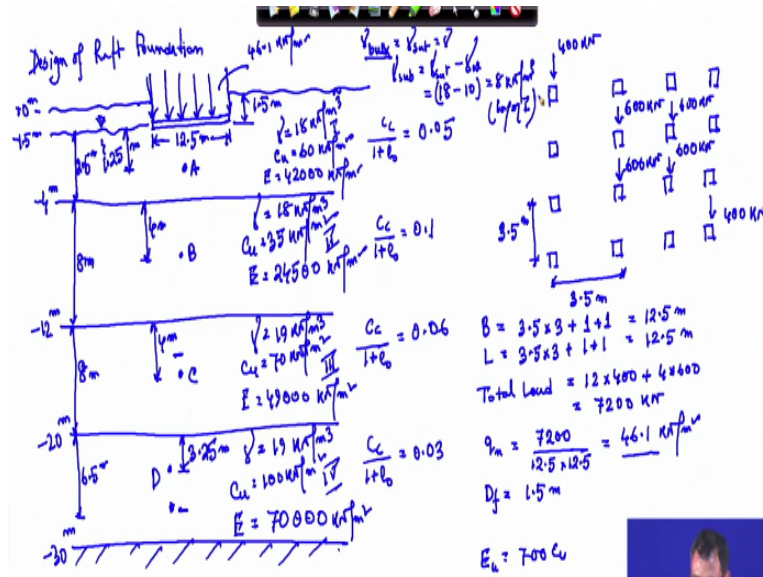 Design of Raft Foundation
46.1 kN/m²
±0 m
-1.5 m
1.5 m
12.5 m
2.5 m
1.25 m
•A
γ = 18 kN/m³
I
Cu = 60 kN/m²
E = 42000 kN/m²
Cc / 1+e₀ = 0.05
-4 m
8 m
4 m
•B
γ = 18 kN/m³
Cu = 35 kN/m²
II
E = 24500 kN/m²
Cc / 1+e₀ = 0.1
-12 m
8 m
4 m
•C
γ = 19 kN/m³
Cu = 70 kN/m²
III
E = 49000 kN/m²
Cc / 1+e₀ = 0.06
-20 m
6.5 m
3.25 m
D•
γ = 19 kN/m³
Cu = 100 kN/m²
IV
E = 70000 kN/m²
Cc / 1+e₀ = 0.03
-30 m
γbulk = γsat = γ
γsub = γsat - γw
= (18-10) = 8 kN/m³
400 kN
600 kN
600 kN
600 kN
600 kN
400 kN
3.5 m
3.5 m
B = 3.5×3 + 1+1 = 12.5 m
L = 3.5×3 + 1+1 = 12.5 m
Total Load = 12×400 + 4×600
= 7200 kN
qn = 7200 / 12.5×12.5 = 46.1 kN/m²
Df = 1.5 m
Eu = 700 Cu